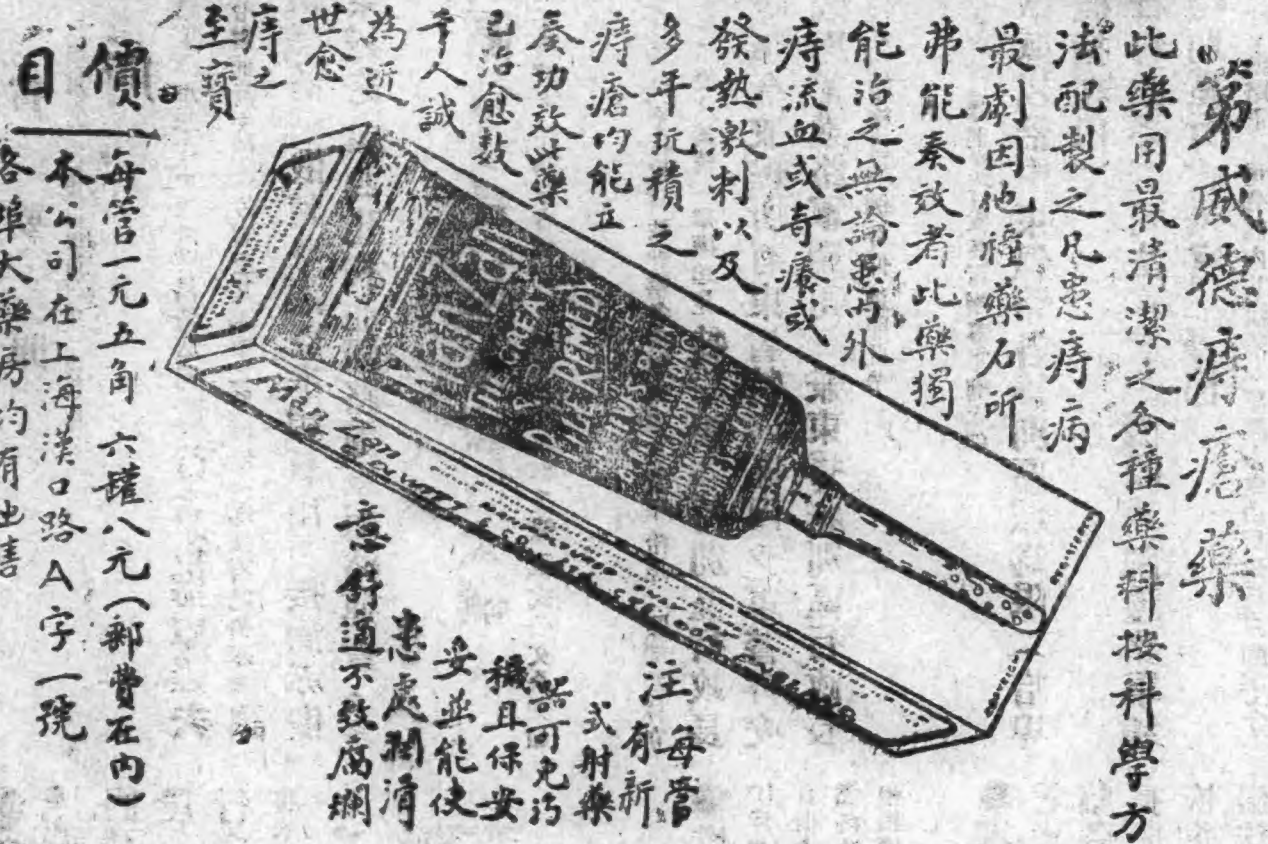 第威德痔瘡藥
此藥用最清潔之各種藥料按科學方
法配製之凡患痔病
最劇因他種藥石所
弗能奏效者此藥獨
能治之無論患內外
痔流血或奇癢或
發熱激刺以及
多年玩積之
痔瘡均能立
奏功效此藥
已治愈數
千人誠
為近
世愈
痔之
至寶
Manzan
THE GREAT
PILE REMEDY
注意
每管
有新
式射藥
器可免污
穢且保安
妥並能使
患處潤滑
舒適不致腐爛
價目
每管一元五角 六罐八元(郵費在內)
本公司在上海漢口路A字一號
各埠大藥房均有出售